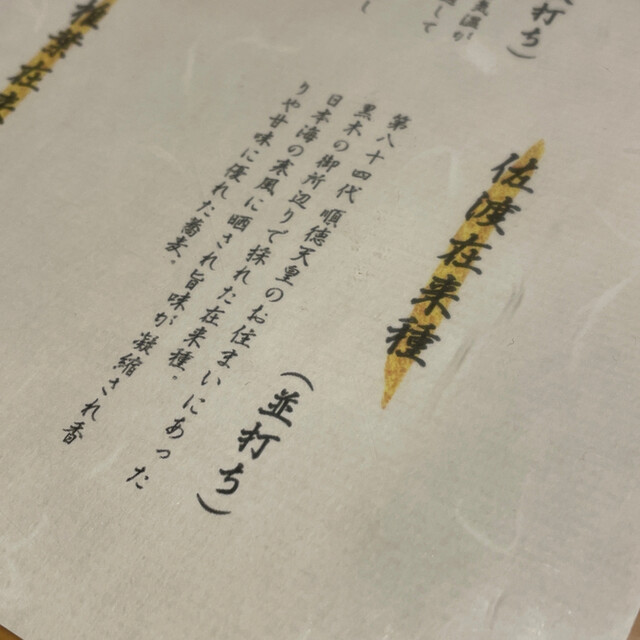 打ち)
佐渡在来種
第八十四代 順徳天皇のお住まいにあった
黒木の御所辺りで採れた在来種、
日本海の寒風に晒され旨味が凝縮され香
りや甘味に優れた蕎麦
(並打ち)